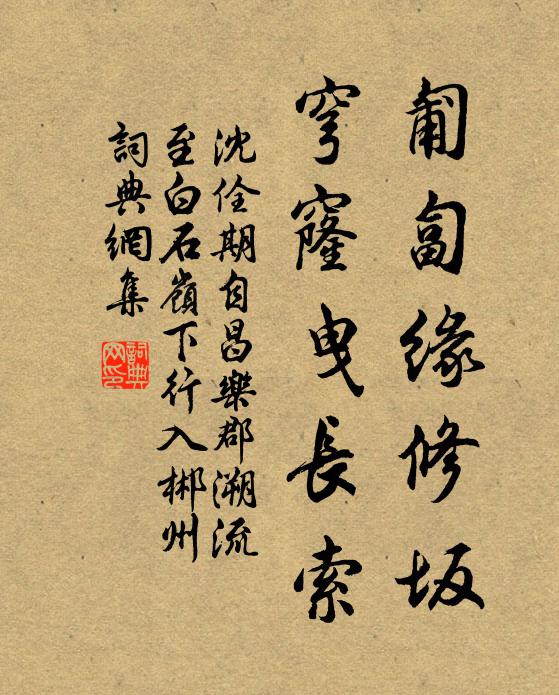 匍匐緣修坂
穹窿曳長索
沈佺期自昌樂郡溯流
至白石嶺下行入郴州
詞典網集
詞典網印